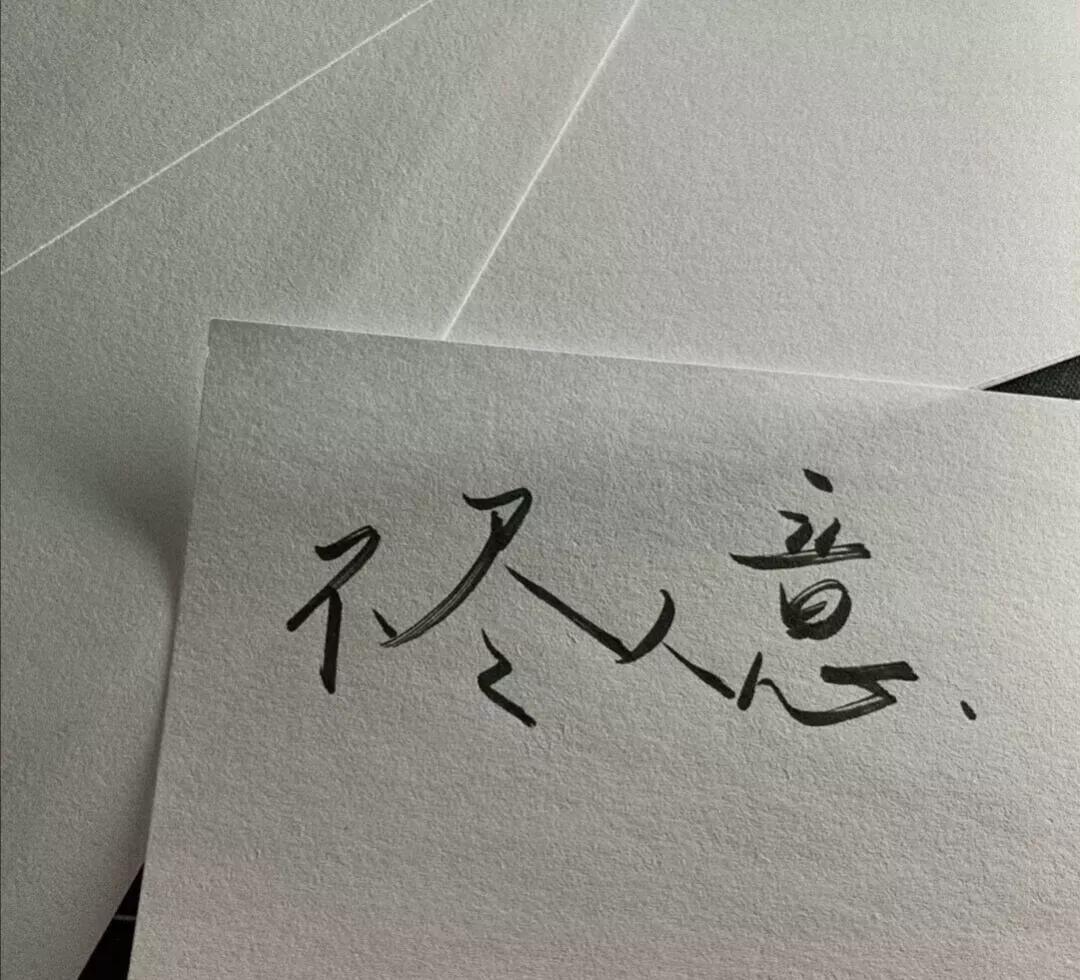 不尽人意.